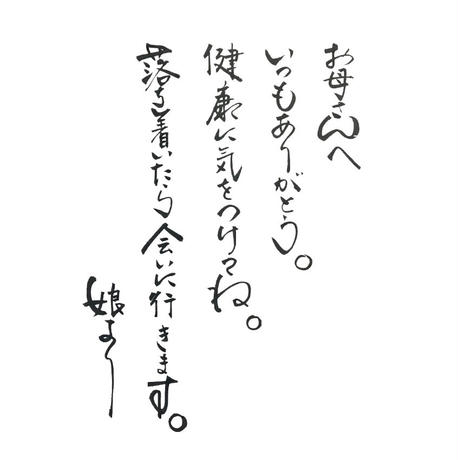 お母さんへ
いつもありがとう。
健康に気をつけてね。
落ち着いたら会いに行きます。
娘より